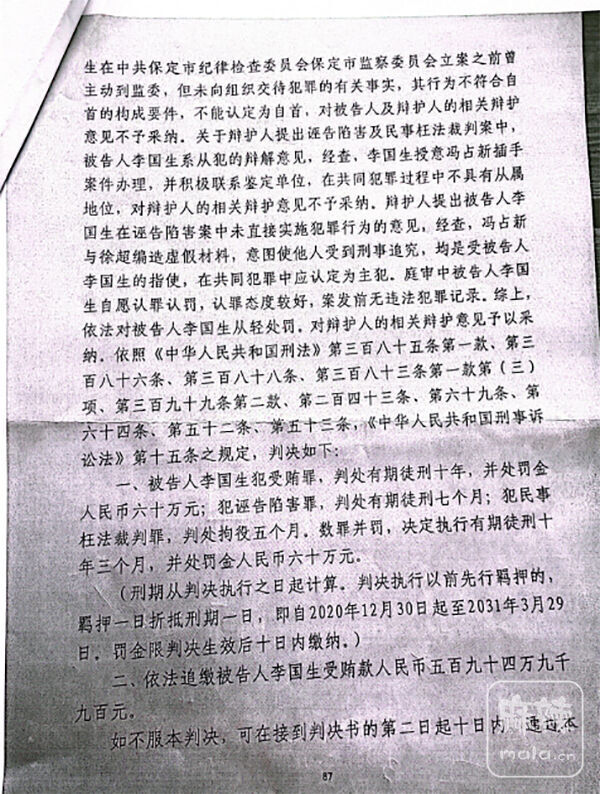 生在中共保定市纪律检查委员会保定市监察委员会立案之前曾
主动到监委，但未向组织交待犯罪的有关事实，其行为不符合自
首的构成要件，不能认定为自首，对被告人及辩护人的相关辩护
意见不予采纳。关于辩护人提出诬告陷害及民事枉法裁判案中，
被告人李国生系从犯的辩解意见，经查，李国生授意冯占新插手
案件办理，并积极联系鉴定单位，在共同犯罪过程中不具有从属
地位，对辩护人的相关辩护意见不予采纳。辩护人提出被告人李
国生在诬告陷害案中未直接实施犯罪行为的意见，经查，冯占新
与徐超编造虚假材料，意图使他人受到刑事追究，均是受被告人
李国生的指使，在共同犯罪中应认定为主犯。庭审中被告人李国
生自愿认罪认罚，认罪态度较好，案发前无违法犯罪记录。综上，
依法对被告人李国生从轻处罚。对辩护人的相关辩护意见予以采
纳。依照《中华人民共和国刑法》第三百八十五条第一款、第三
百八十六条、第三百八十八条、第三百八十三条第一款第（三）
项、第三百九十九条第二款、第二百四十三条、第六十九条、第
六十四条、第五十二条、第五十三条，《中华人民共和国刑事诉
讼法》第十五条之规定，判决如下：
一、被告人李国生犯受贿罪，判处有期徒刑十年，并处罚金
人民币六十万元；犯诬告陷害罪，判处有期徒刑七个月；犯民事
枉法裁判罪，判处拘役五个月。数罪并罚，决定执行有期徒刑十
年三个月，并处罚金人民币六十万元。
（刑期从判决执行之日起计算。判决执行以前先行羁押的，
羁押一日折抵刑期一日，即自2020年12月30日起至2031年3月29
日。罚金限判决生效后十日内缴纳。）
二、依法追缴被告人李国生受贿款人民币五百九十四万九千
九百元。
如不服本判决，可在接到判决书的第二日起十日内，通过本
87
麻辣
mala.cn